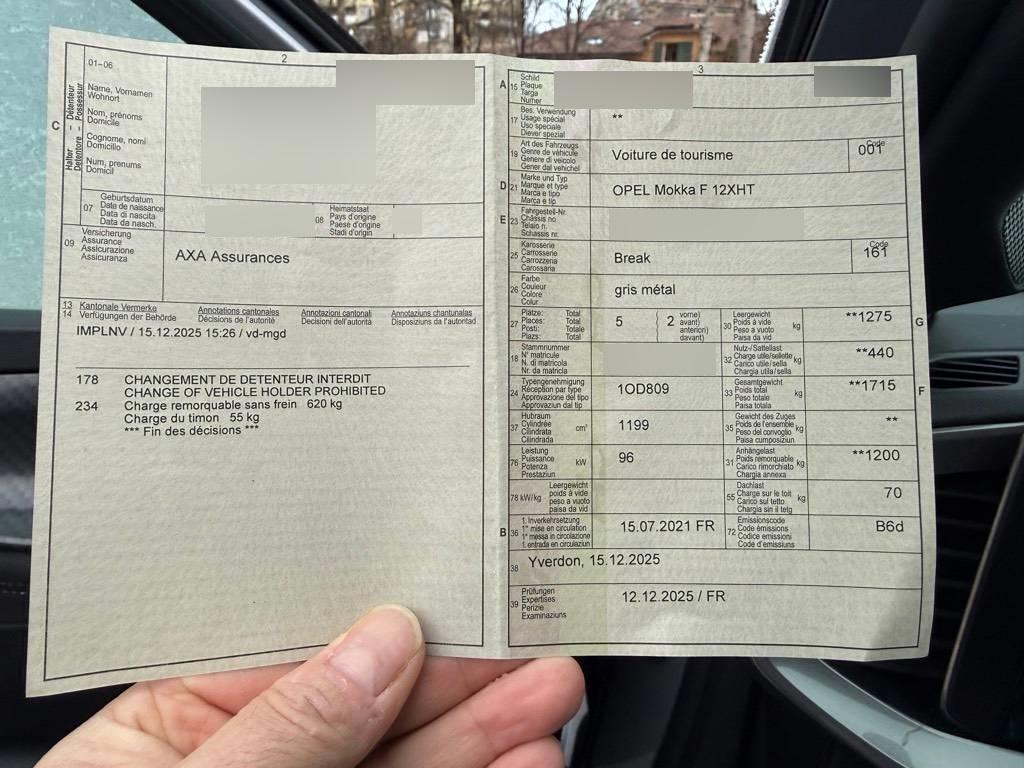 2
01–06
Halter – Détenteur
Detentore – Possessur
C
Name, Vornamen
Wohnort
Nom, prénoms
Domicile
Cognome, nomi
Domicilio
Num, prenums
Domicil
07
Geburtsdatum
Date de naissance
Data di nascita
Data da nasch.
08
Heimatstaat
Pays d'origine
Paese d'origine
Stadi d'origin
09
Versicherung
Assurance
Assicurazione
Assicuranza
AXA Assurances
13
14
Kantonale Vermerke
Verfügungen der Behörde
Annotations cantonales
Décisions de l'autorité
Annotazioni cantonali
Decisioni dell'autorità
Annotaziuns chantunalas
Disposiziuns da l'autoritad
IMPLNV / 15.12.2025 15:26 / vd-mgd
178 CHANGEMENT DE DETENTEUR INTERDIT
CHANGE OF VEHICLE HOLDER PROHIBITED
234 Charge remorquable sans frein 620 kg
Charge du timon 55 kg
*** Fin des décisions ***
3
A 15
Schild
Plaque
Targa
Numer
17
Bes. Verwendung
Usage spécial
Uso speciale
Diever spezial
**
19
Art des Fahrzeugs
Genre de véhicule
Genere di veicolo
Gener dal vehichel
Voiture de tourisme
Code
001
D 21
Marke und Typ
Marque et type
Marca e tipo
Marca e tip
OPEL Mokka F 12XHT
E 23
Fahrgestell-Nr.
Châssis no
Telaio n.
Schassis nr.
25
Karosserie
Carrosserie
Carrozzeria
Carossaria
Break
Code
161
26
Farbe
Couleur
Colore
Colur
gris métal
27
Plätze: Total
Places: Total
Posti: Totale
Plazs: Total
5
2
vorne)
avant)
anteriori)
davant)
30
Leergewicht
Poids à vide
Peso a vuoto
Paisa da vid
kg
**1275
G
18
Stammnummer
N° matricule
N. di matricola
Nr. da matricla
32
Nutz-/Sattellast
Charge utile/sellette
Carico utile/sella
Chargia utila/sella
kg
**440
24
Typengenehmigung
Réception par type
Approvazione del tipo
Approvaziun dal tip
1OD809
33
Gesamtgewicht
Poids total
Peso totale
Paisa totala
kg
**1715
F
37
Hubraum
Cylindrée
Cilindrata
Cilindrada
cm³
1199
35
Gewicht des Zuges
Poids de l'ensemble
Peso del convoglio
Paisa cumposiziun
kg
**
76
Leistung
Puissance
Potenza
Prestaziun
kW
96
31
Anhängelast
Poids remorquable
Carico rimorchiato
Chargia annexa
kg
**1200
78 kW/kg
Leergewicht
poids à vide
peso a vuoto
paisa da vid
55
Dachlast
Charge sur le toit
Carico sul tetto
Chargia sin il tetg
kg
70
B 36
1. Inverkehrsetzung
1re mise en circulation
1a messa in circolazione
1. entrada en circulaziun
15.07.2021 FR
72
Emissionscode
Code émissions
Codice emissioni
Code d'emissiuns
B6d
38
Yverdon, 15.12.2025
39
Prüfungen
Expertises
Perizie
Examinaziuns
12.12.2025 / FR